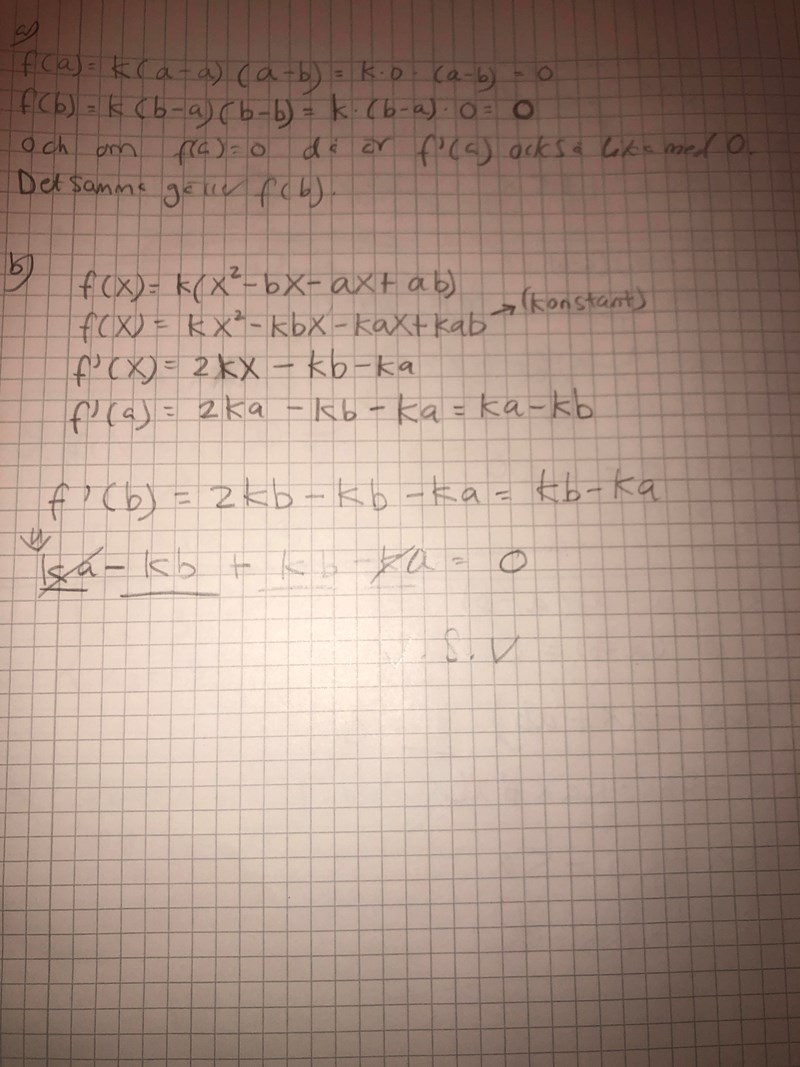 a)
f(a) = k(a-a)(a-b) = k·0·(a-b) = 0
f(b) = k(b-a)(b-b) = k·(b-a)·0 = 0
Och om f(a)=0 då är f'(a) också lika med 0.
Det samma gäller f(b).
b)
f(x) = k(x²-bx-ax+ab)
f(x) = kx²-kbx-kax+kab → (konstant)
f'(x) = 2kx - kb - ka
f'(a) = 2ka - kb - ka = ka - kb
f'(b) = 2kb - kb - ka = kb - ka
⇓
ka - kb + kb - ka = 0
V.S.V